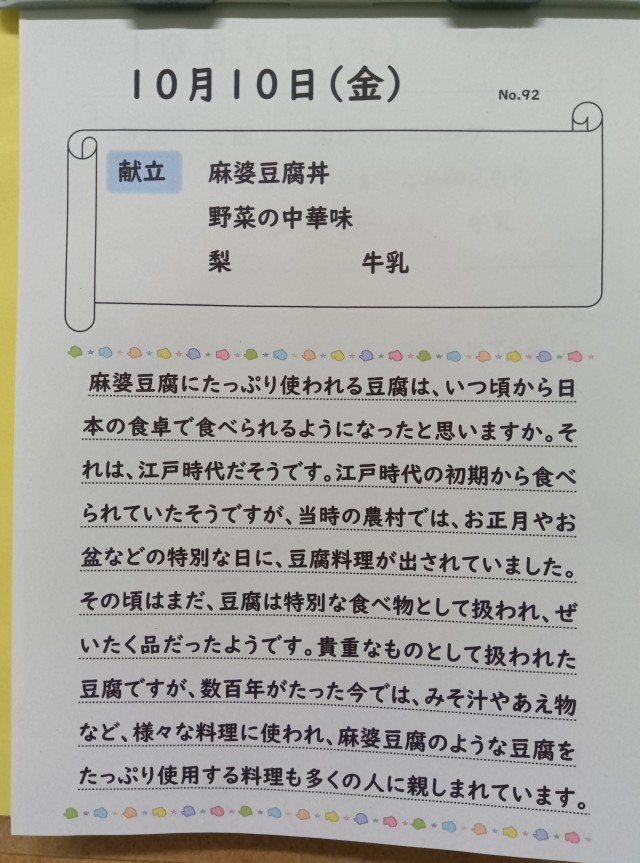 10月10日(金)
No.92
献立 麻婆豆腐丼
野菜の中華味
梨 牛乳
麻婆豆腐にたっぷり使われる豆腐は、いつ頃から日
本の食卓で食べられるようになったと思いますか。そ
れは、江戸時代だそうです。江戸時代の初期から食べ
られていたそうですが、当時の農村では、お正月やお
盆などの特別な日に、豆腐料理が出されていました。
その頃はまだ、豆腐は特別な食べ物として扱われ、ぜ
いたく品だったようです。貴重なものとして扱われた
豆腐ですが、数百年がたった今では、みそ汁やあえ物
など、様々な料理に使われ、麻婆豆腐のような豆腐を
たっぷり使用する料理も多くの人に親しまれています。